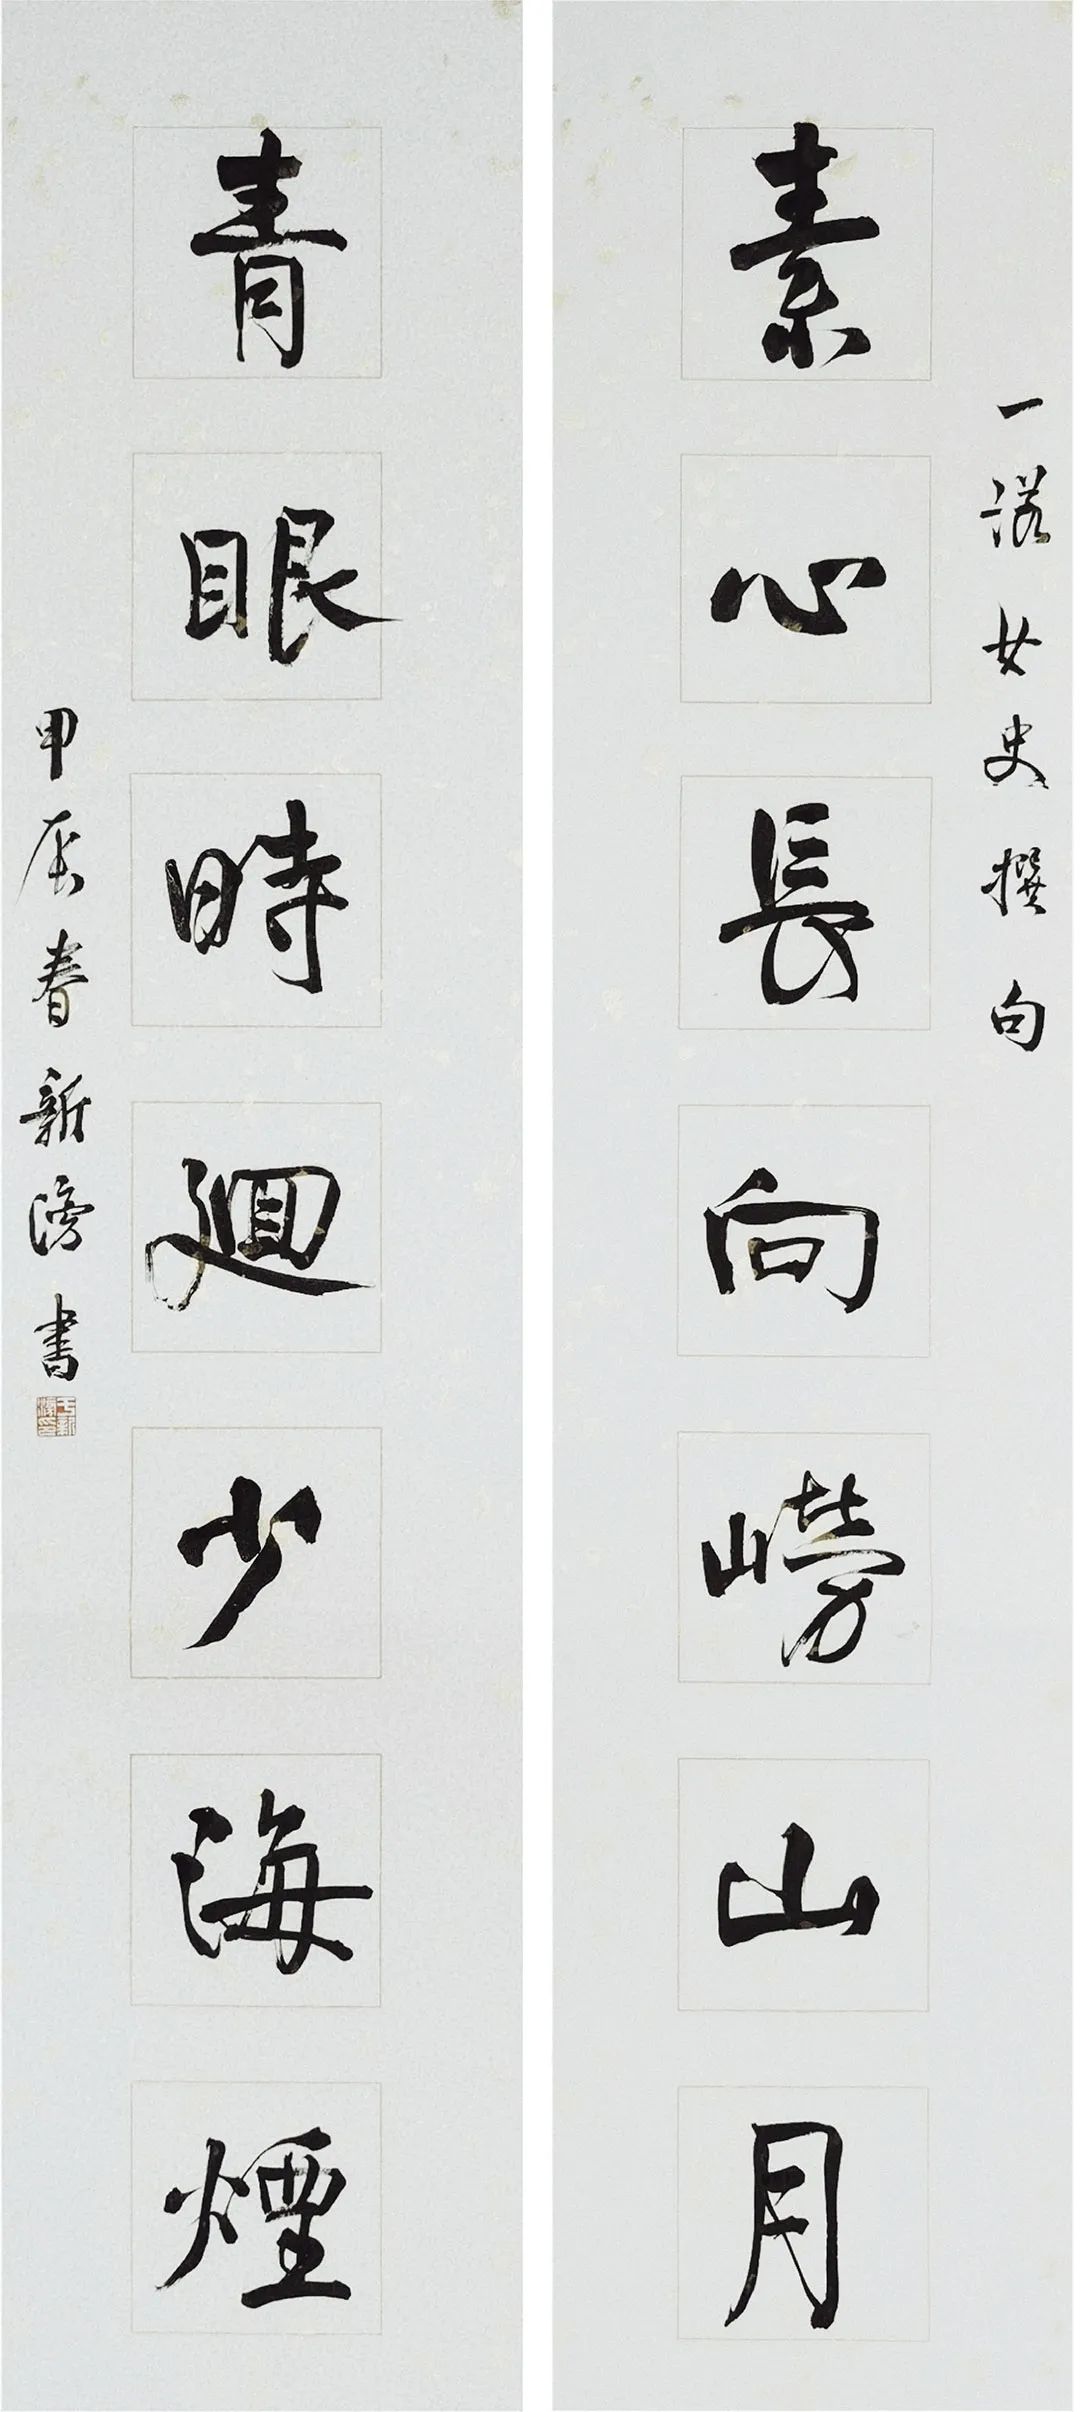 一諾女史撰句
素心長向嶗山月
青眼時廻少海煙
甲辰春新滂書